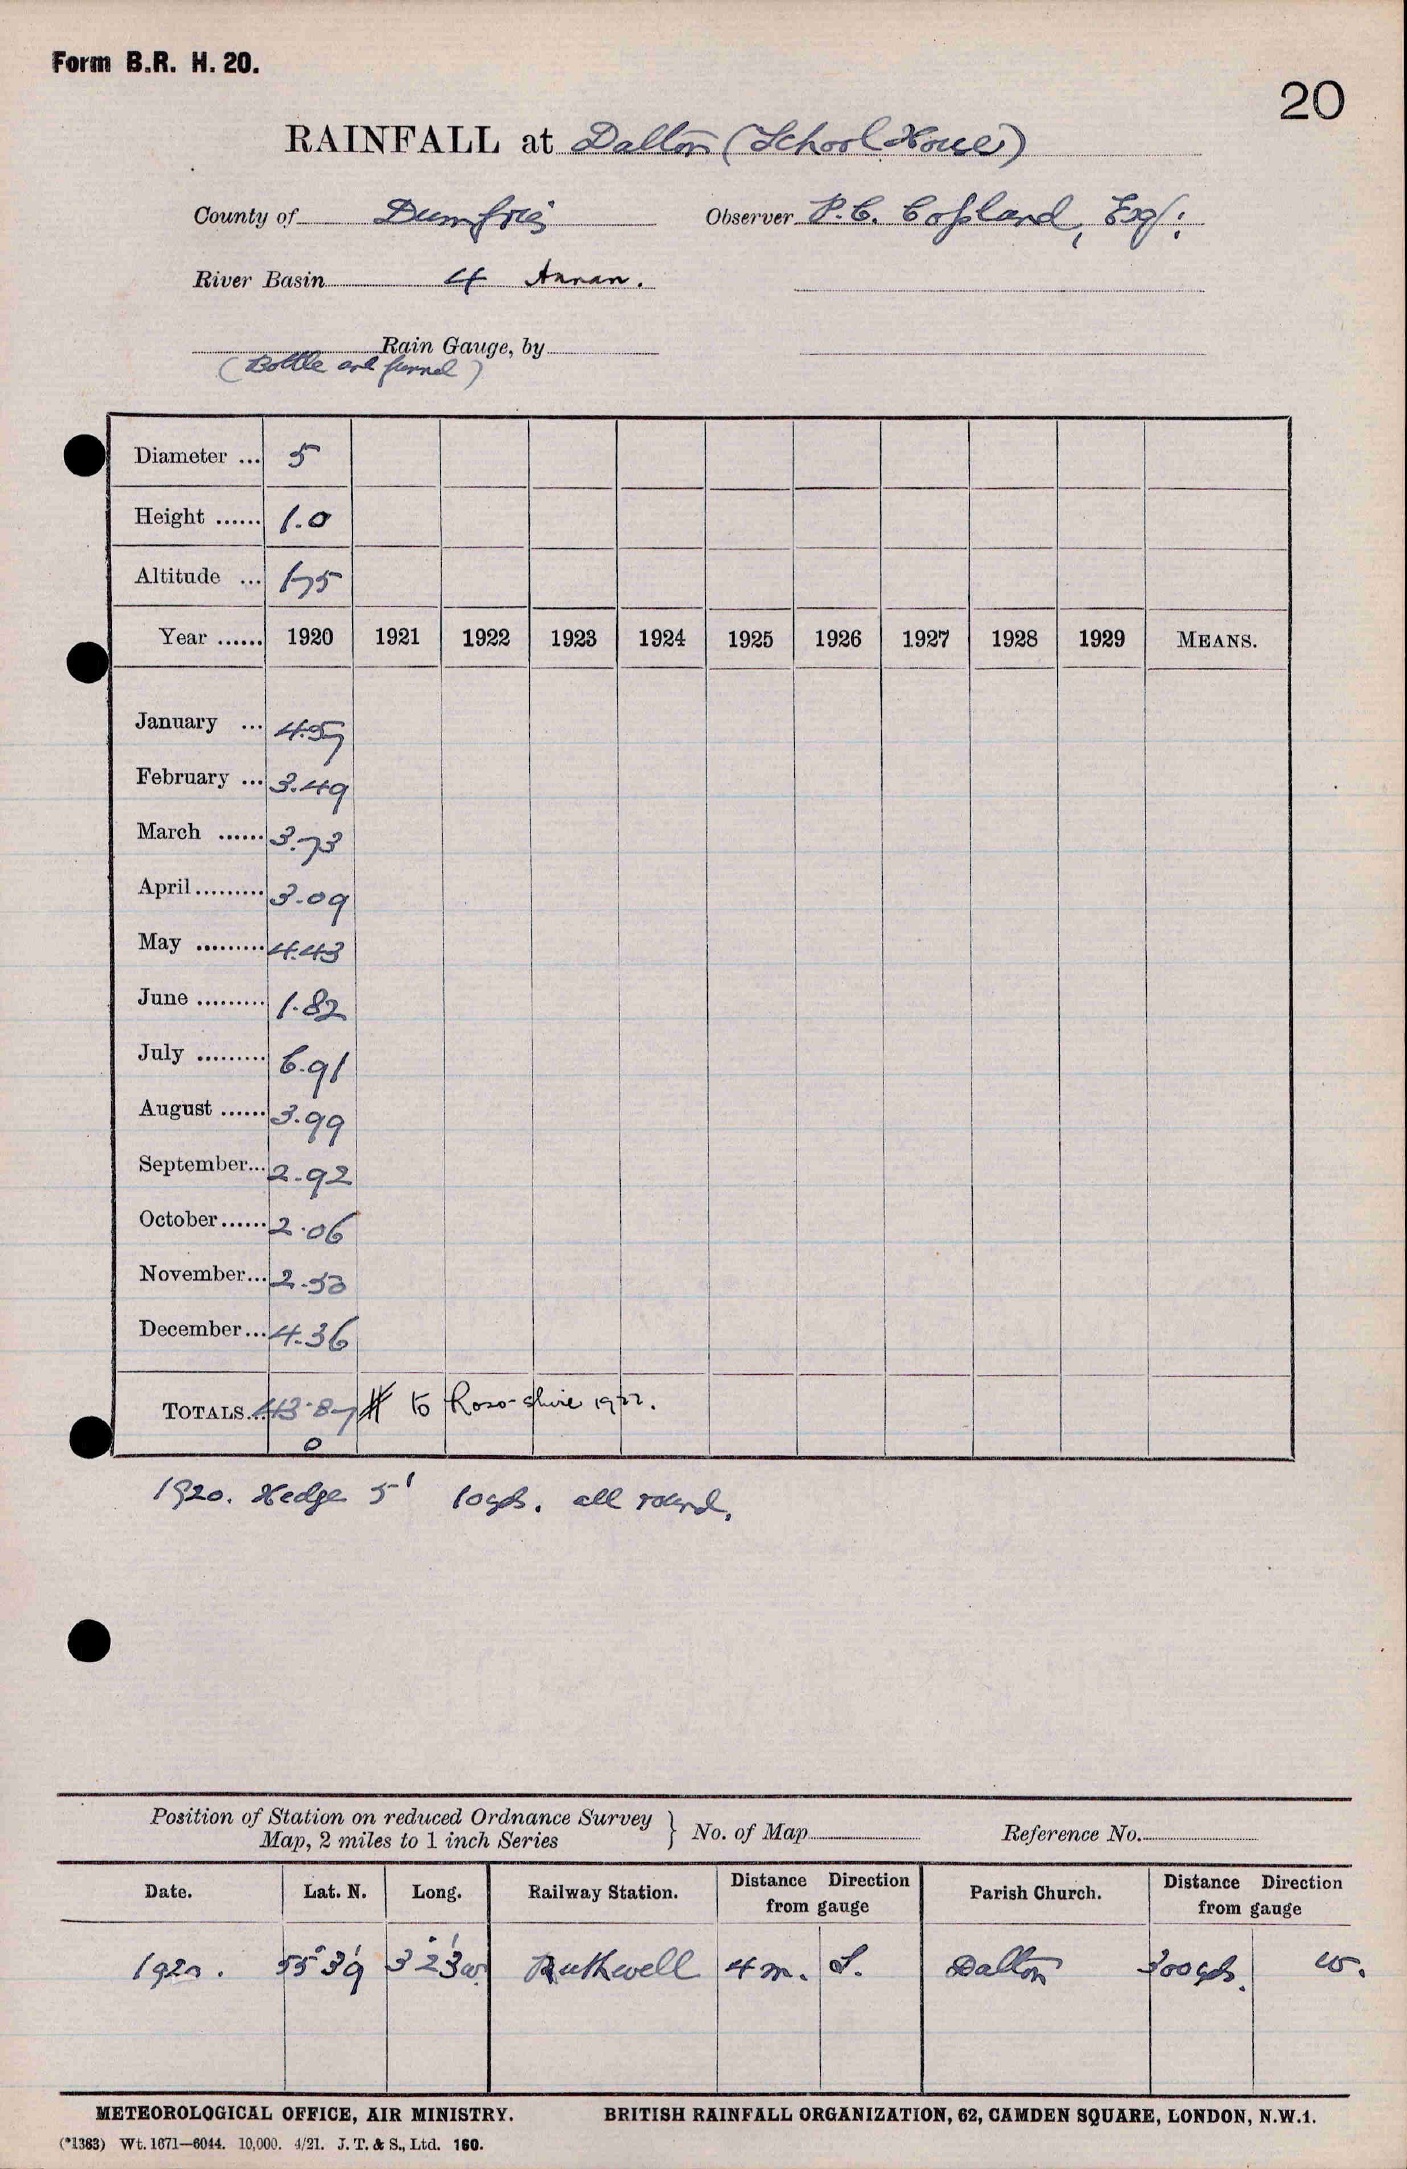 Form B.R. H. 20.
20
RAINFALL at Dalton (School House)
County of Dumfries Observer P.C. Copland, Esq:
River Basin 4 Annan.
Rain Gauge, by
(Bottle and funnel)
Diameter ... 5
Height ...... 1.0
Altitude ... 175
Year ...... 1920 1921 1922 1923 1924 1925 1926 1927 1928 1929 MEANS.
January ... 4.57
February ... 3.49
March ...... 3.73
April ......... 3.09
May ......... 4.43
June ......... 1.82
July ......... 6.91
August ...... 3.99
September... 2.92
October ...... 2.06
November... 2.50
December... 4.36
TOTALS... 43.87 # to Ross-shire 1922.
0
1920. Hedge 5' 10yds. all round.
Position of Station on reduced Ordnance Survey
Map, 2 miles to 1 inch Series } No. of Map Reference No.
Date. Lat. N. Long. Railway Station. Distance Direction from gauge Parish Church. Distance Direction from gauge
1920. 55° 3'9 3° 23' w. Ruthwell 4 m. S. Dalton 300 yds. W.
METEOROLOGICAL OFFICE, AIR MINISTRY. BRITISH RAINFALL ORGANIZATION, 62, CAMDEN SQUARE, LONDON, N.W.1.
(*1383) Wt. 1671—6044. 10,000. 4/21. J. T. & S., Ltd. 160.